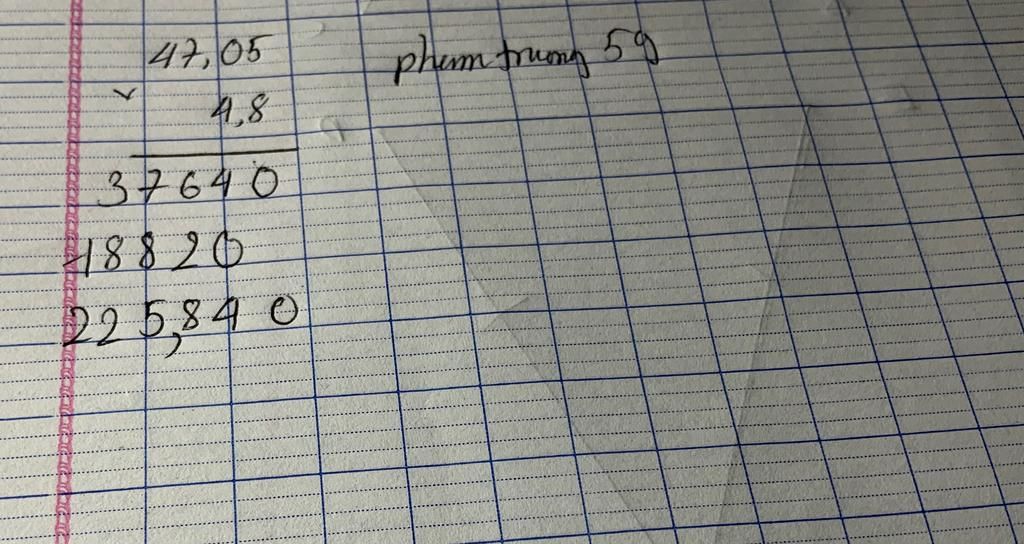 47,05
× 4,8
37640
18820
225,840
phạm trương 5g